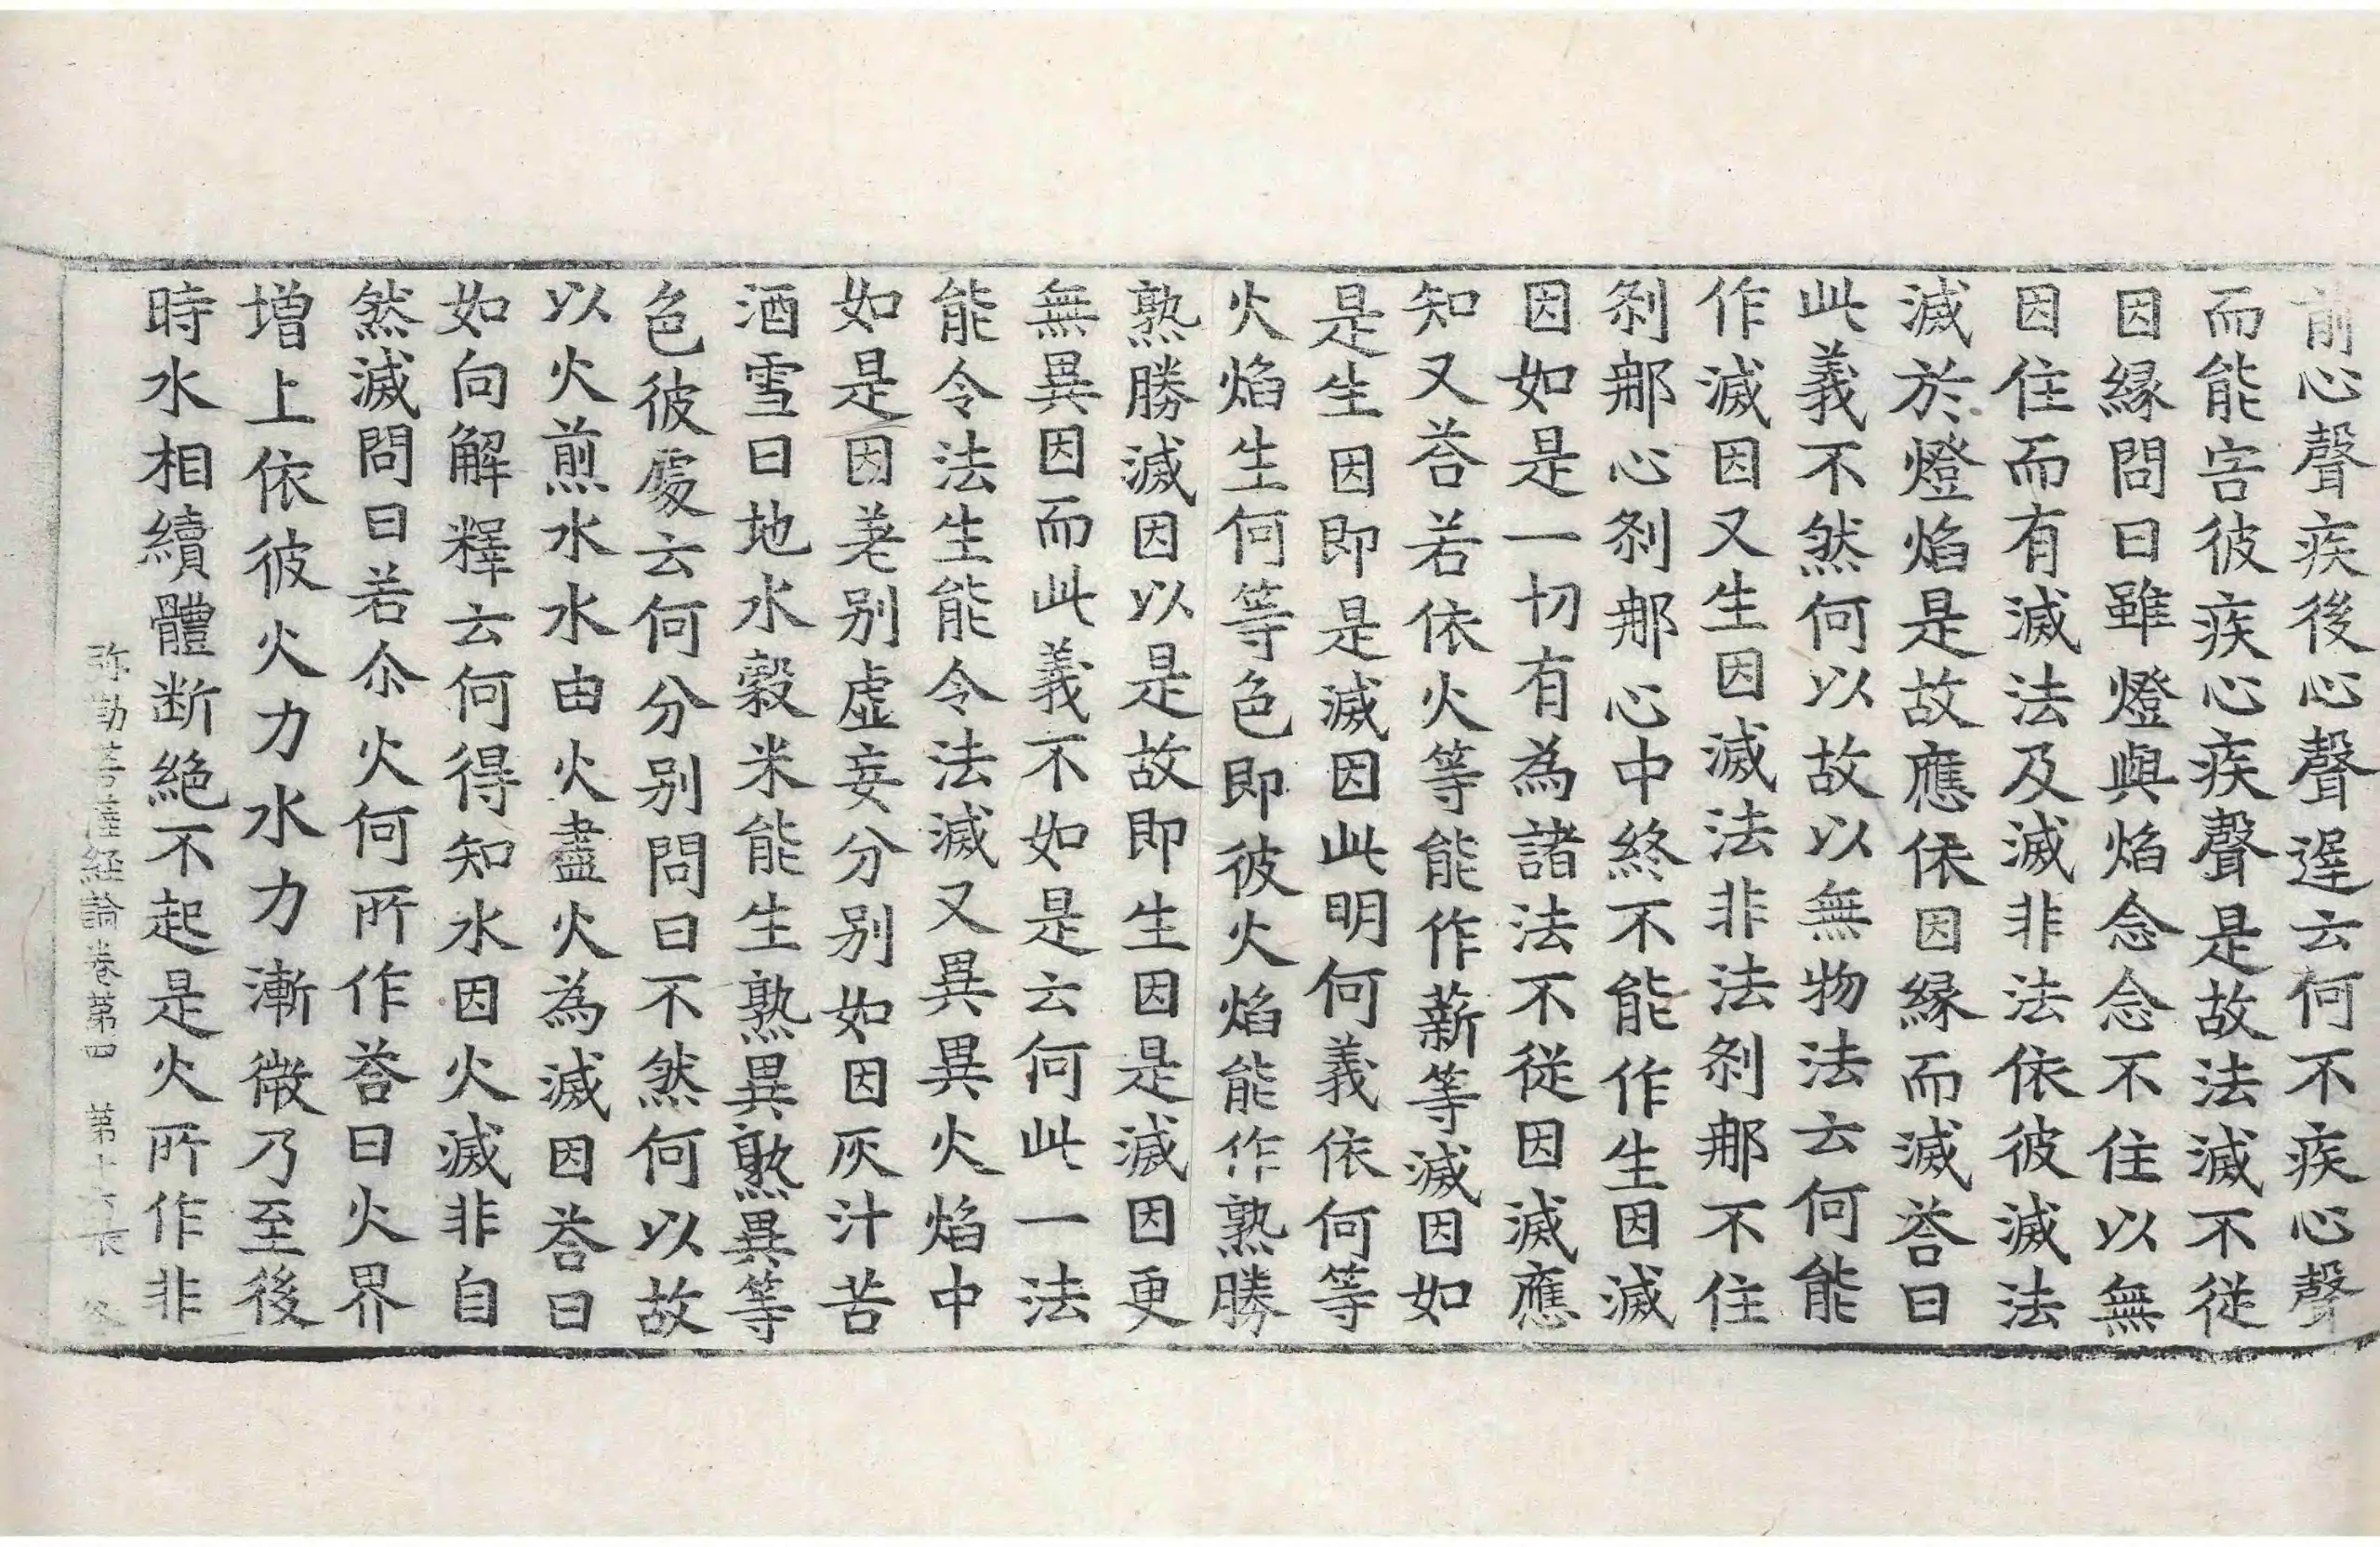 前心聲疾後心聲遲云何不疾心聲
而能害彼疾心疾聲是故法滅不從
因緣問曰雖燈與焰念念不住以無
因住而有滅法及滅非法依彼滅法
滅於燈焰是故應依因緣而滅荅曰
此義不然何以故以無物法云何能
作滅因又生因滅法非法剎那不住
剎那心剎那心中終不能作生因滅
因如是一切有為諸法不從因滅應
知又荅若依火等能作薪等滅因如
是生因即是滅因此明何義依何等
火焰生何等色即彼火焰能作熟勝
熟勝滅因以是故即生因是滅因更
無異因而此義不如是云何此一法
能令法生能令法滅又異異火焰中
如是因差別虛妄分別如因灰汁苦
酒雪日地水穀米能生熟異熟異等
色彼處云何分別問曰不然何以故
以火煎水水由火盡火為滅因荅曰
如向解釋云何得知水因火滅非自
然滅問曰若尒火何所作荅曰火界
增上依彼火力水力漸微乃至後
時水相續體断絕不起是火所作非
弥勒菩薩経論卷第四 第十六張